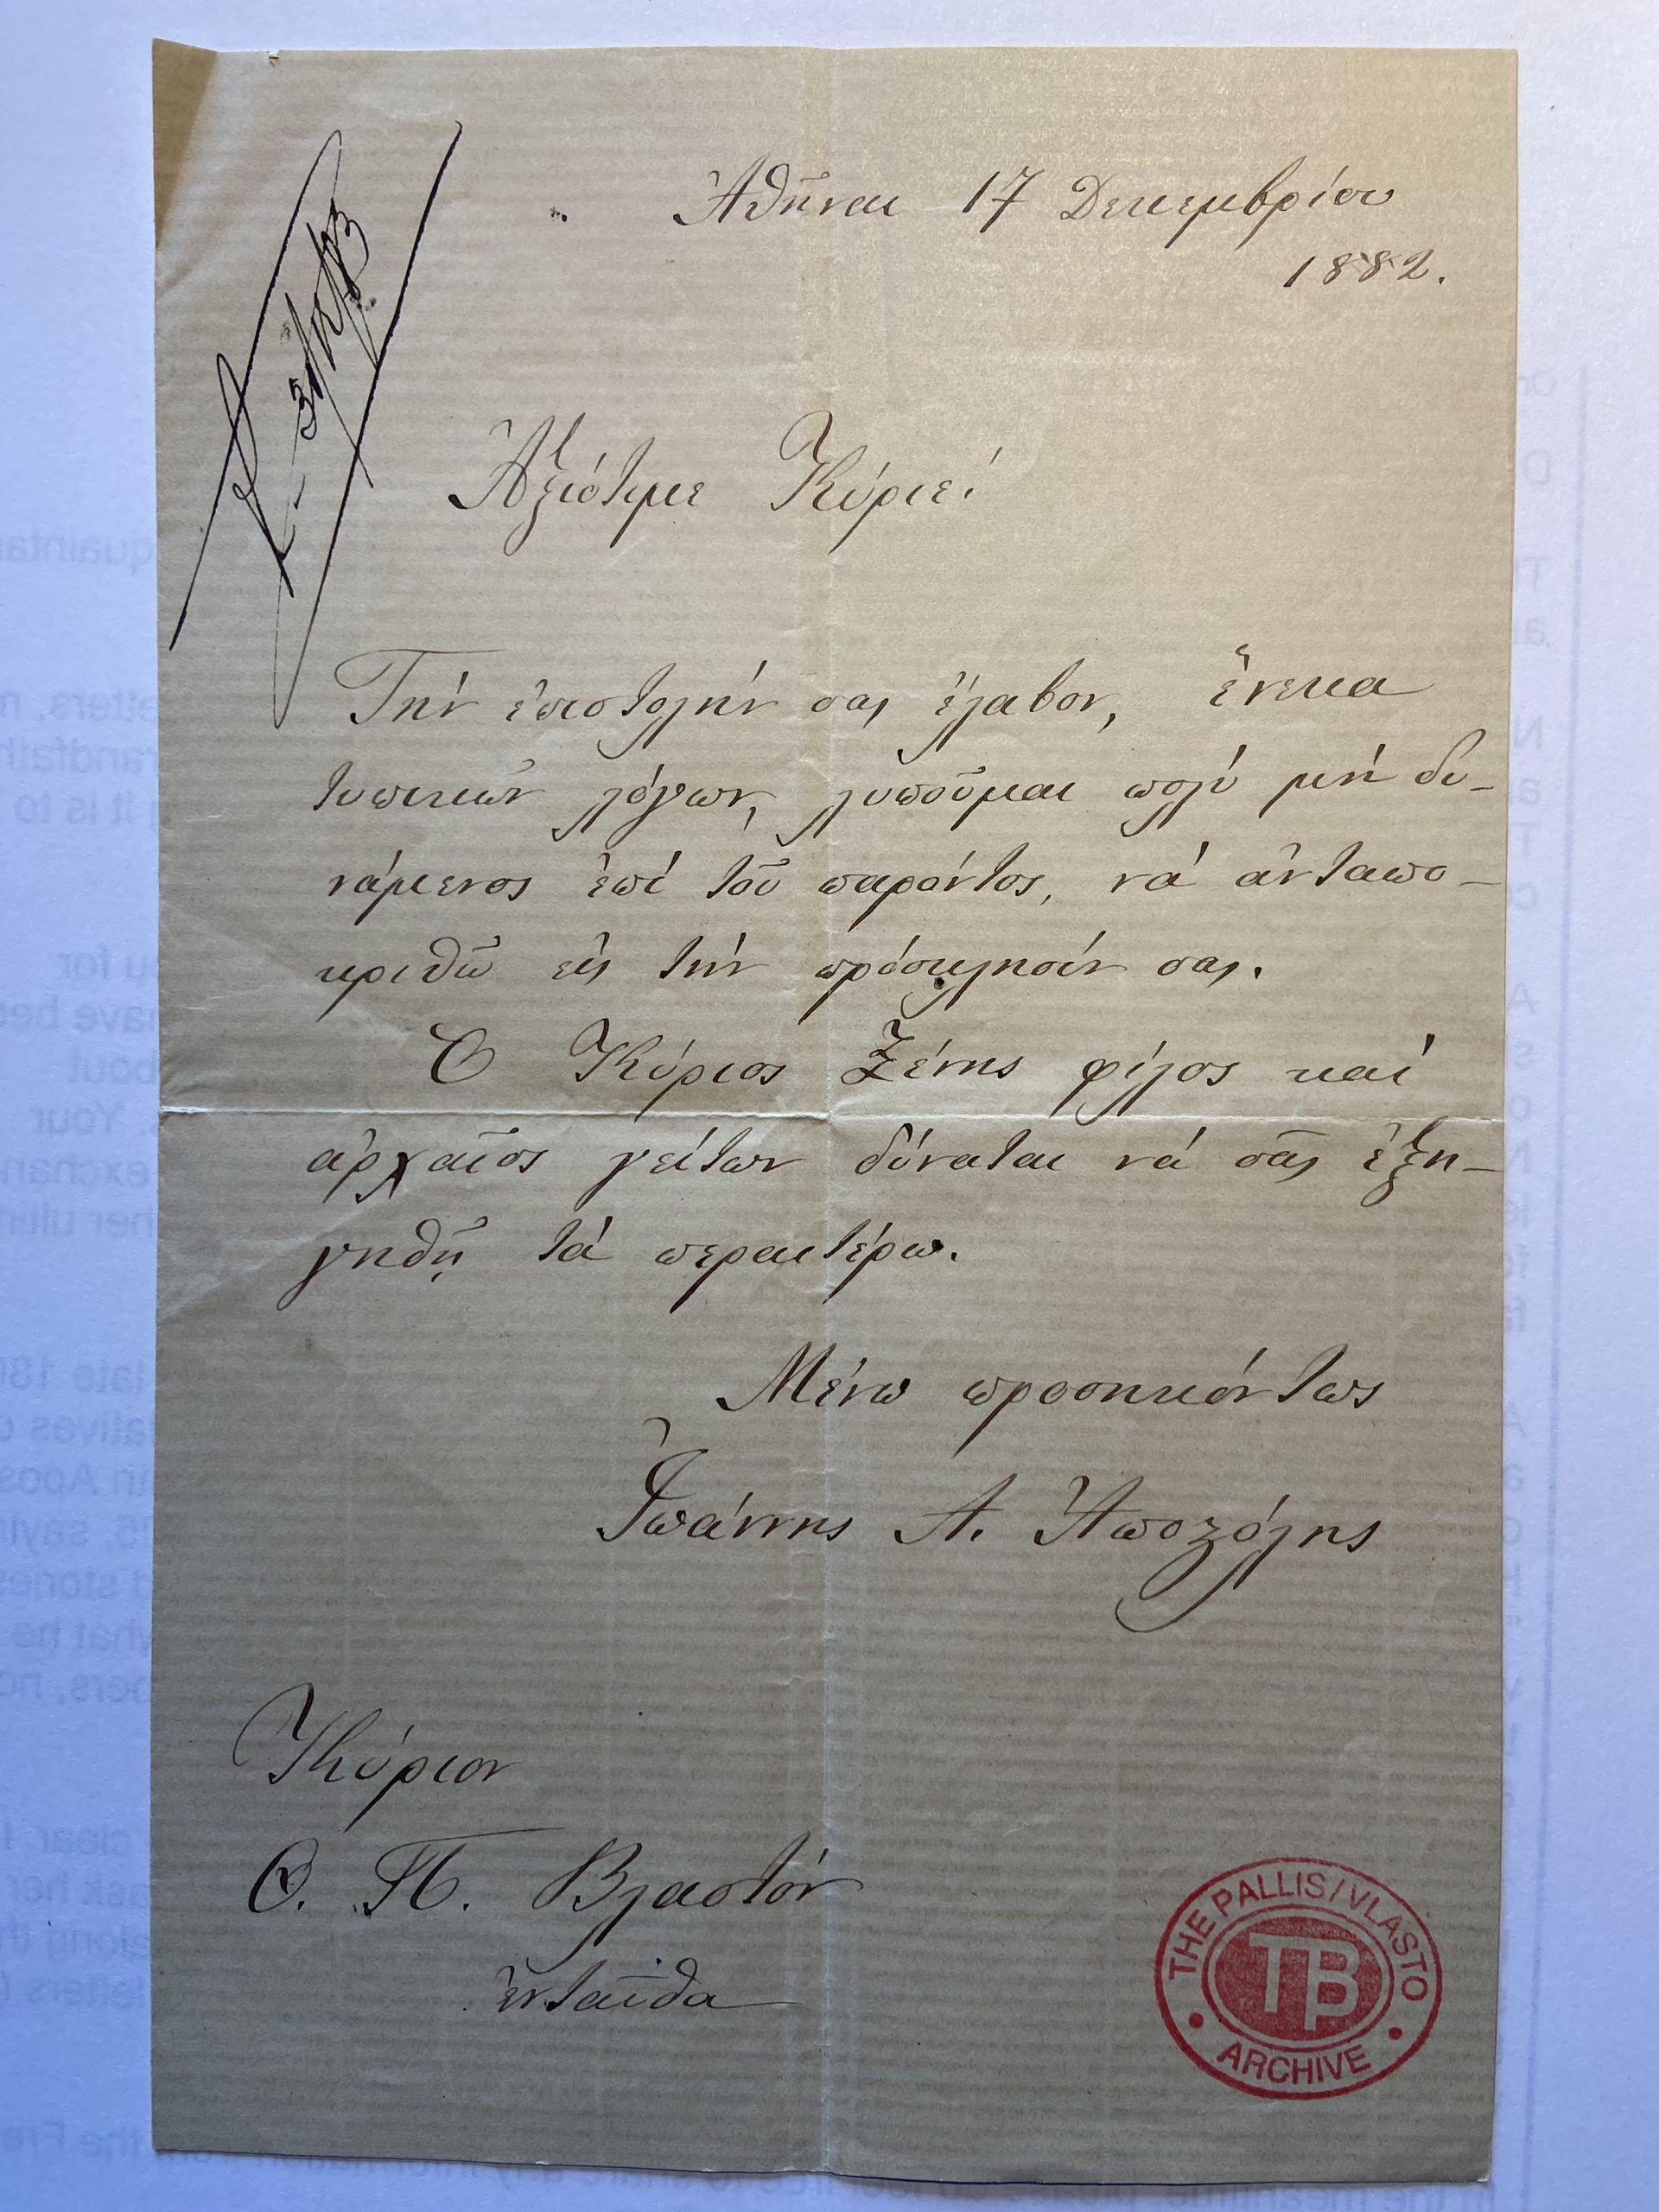 Ἀθῆναι 17 Δεκεμβρίου
1882.
Ἀξιότιμε Κύριε!
Τήν ἐπιστολήν σας ἔλαβον, ἕνεκα
τυπικῶν λόγων, λυποῦμαι πολύ μή δυ-
νάμενος ἐπί τοῦ παρόντος, νά ἀνταπο-
κριθῶ εἰς τήν πρόσκλησίν σας.
Ὁ Κύριος Ξένης φίλος καί
ἀρχαῖος γείτων δύναται νά σᾶς ἐξη-
γηθῇ τά περαιτέρω.
Μένω προσηκόντως
Ἰωάννης Α. Ἀποστόλης
Κύριον
Θ. Π. Βλαστόν
ἐνταῦθα
THE PALLIS/VLASTO
TB
ARCHIVE